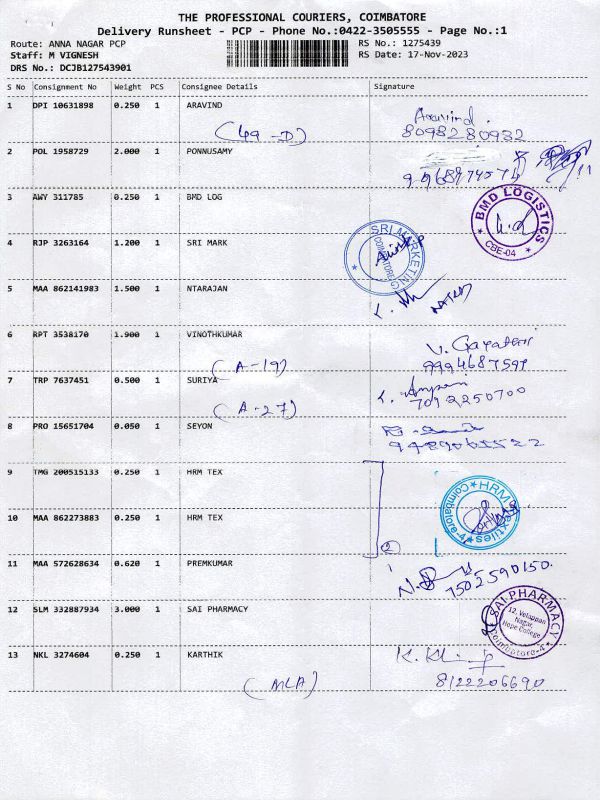 THE PROFESSIONAL COURIERS, COIMBATORE
Delivery Runsheet - PCP - Phone No.:0422-3505555 - Page No.:1
Route: ANNA NAGAR PCP RS No.: 1275439
Staff: M VIGNESH RS Date: 17-Nov-2023
DRS No.: DCJB127543901
S No Consignment No Weight PCS Consignee Details Signature
1 DPI 10631898 0.250 1 ARAVIND Aravind.
(49-D) 8098280982
2 POL 1958729 2.000 1 PONNUSAMY
3 AWY 311785 0.250 1 BMD LOG
BMD LOGISTICS
CBE-04
4 RJP 3263164 1.200 1 SRI MARK
SRI MARKETING
COIMBATORE
5 MAA 862141983 1.500 1 NTARAJAN
6 RPT 3538170 1.900 1 VINOTHKUMAR V. Gayathri
(A-19) 9994687599
7 TRP 7637451 0.500 1 SURIYA
(A-27) 7092250700
8 PRO 15651704 0.050 1 SEYON
9 TMG 200515133 0.250 1 HRM TEX
10 MAA 862273883 0.250 1 HRM TEX
HRM Textiles
Coimbatore-4
2
11 MAA 572628634 0.620 1 PREMKUMAR
7502590150.
12 SLM 332887934 3.000 1 SAI PHARMACY
SAI PHARMACY
12, Velappan
Nagar,
Hope College
Coimbatore-4
13 NKL 3274604 0.250 1 KARTHIK
(MLA) 8122206690